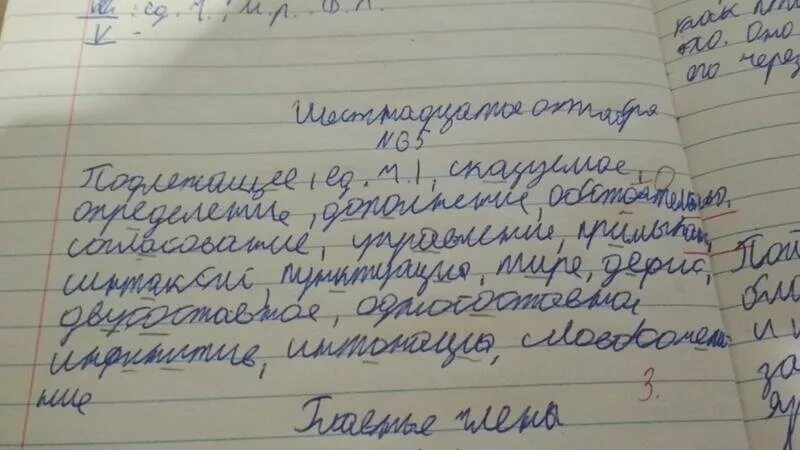 V -
ед. ч., м. р.
Шестнадцатое октября
№65
Подлежащее, ед. ч., сказуемое,
определение, дополнение, обстоятельство.
согласование, управление, примыкан,
синтаксис, пунктуация, тире, дефис,
двусоставное, односоставное
инфинитив, интонация, словосочета-
ние
3.
Главные члены
как
ого через
Под
бло
и
за